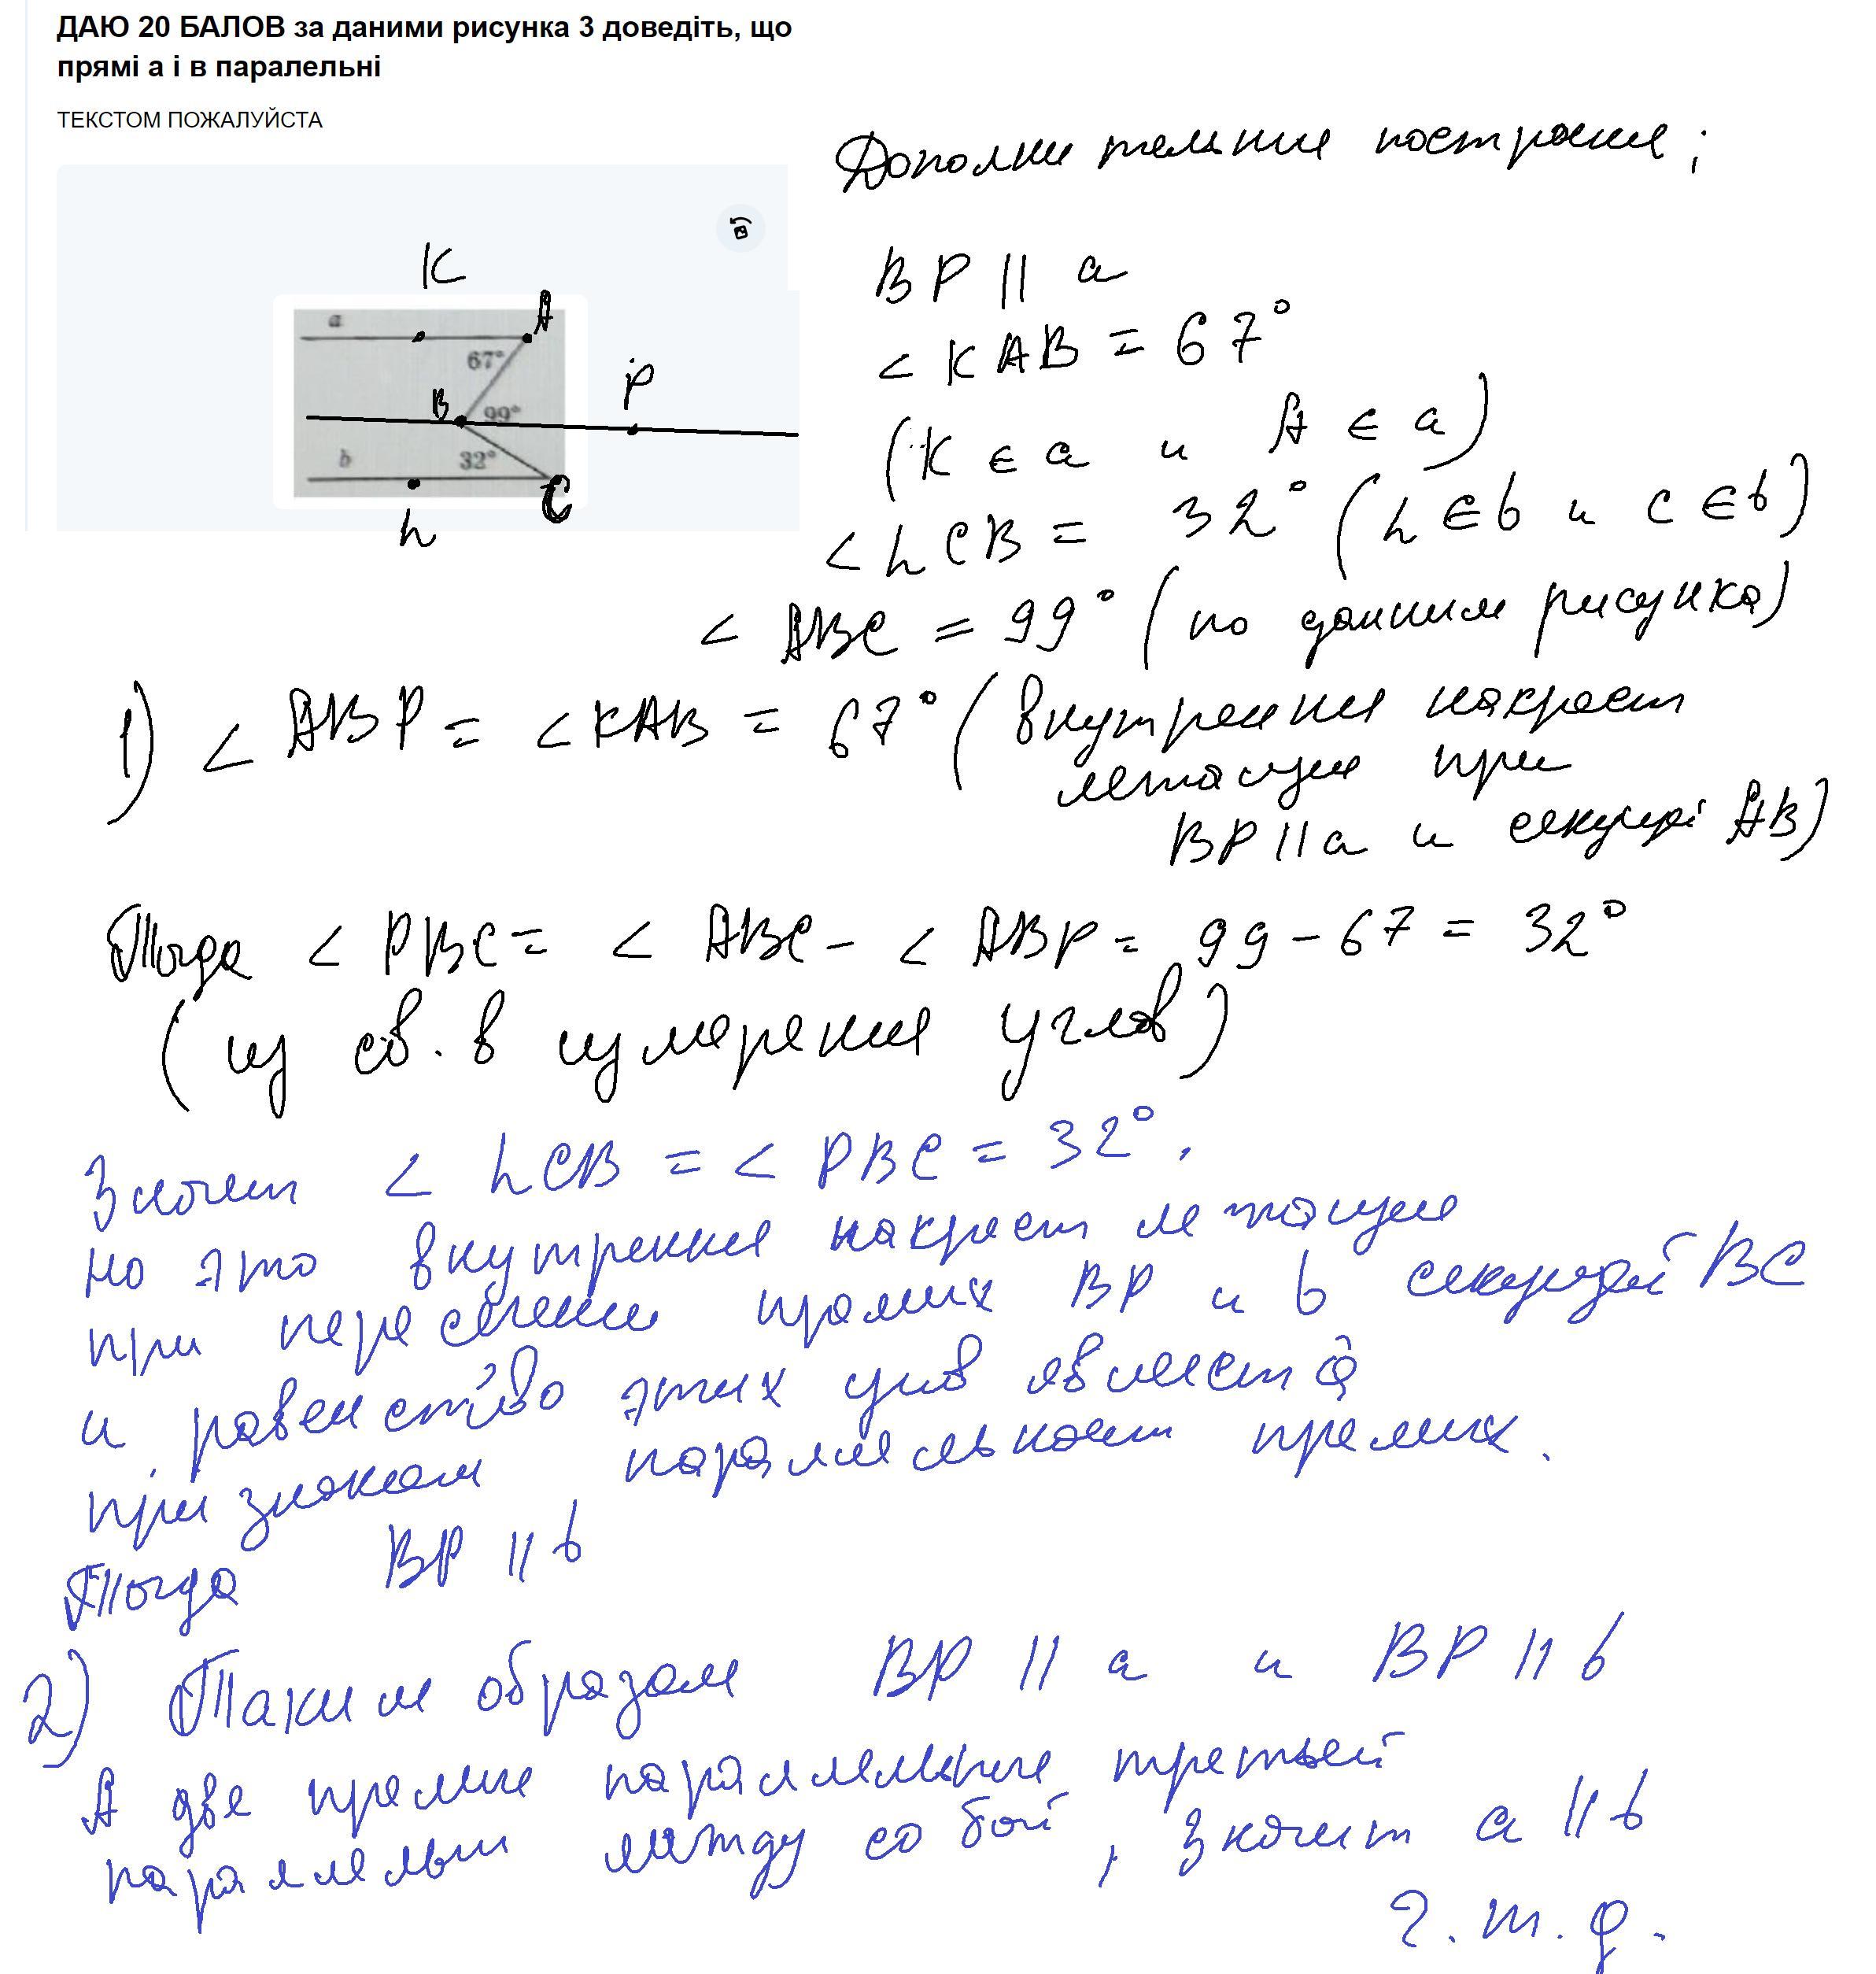 ДАЮ 20 БАЛОВ за даними рисунка 3 доведіть, що
прямі а і в паралельні
ТЕКСТОМ ПОЖАЛУЙСТА
Дополнительние построения;
K
a
A
67°
B
99°
P
b
32°
C
h
BP || a
< KAB = 67°
(K ∈ a и A ∈ a)
< hCB = 32° (h ∈ b и C ∈ b)
< ABC = 99° (по данним рисунка)
1) < ABP = < KAB = 67° (внутренние накрест
лежащие при
BP || a и секущей AB)
Тогда < PBC = < ABC - < ABP = 99 - 67 = 32°
(из св. в измерения углов)
Значит < hCB = < PBC = 32°,
но это внутренние накрест лежащие
при пересечении прямих BP и b секущей BC
и равенство этих углов является
признаком параллельности прямих.
Тогда BP || b
2) Таким образом BP || a и BP || b
А две прямие параллельние третьей
параллельни между собой, значит a || b
ч. т. д.